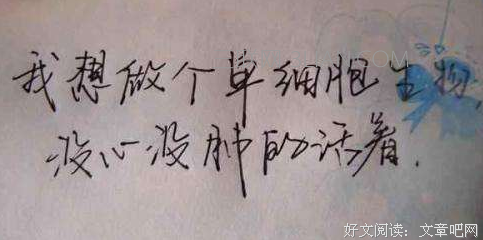 我想做个单细胞生物,
没心没肺的活着.
好文阅读：文章吧网